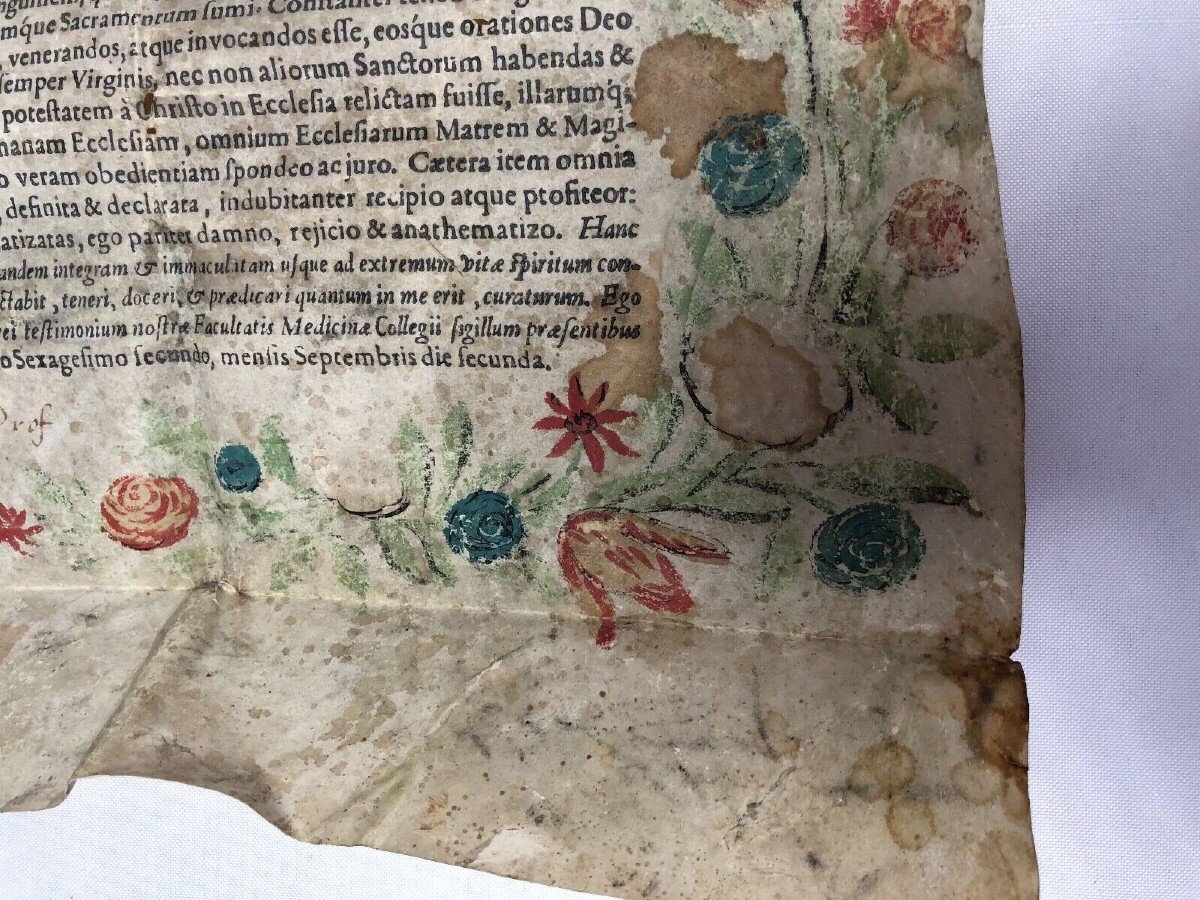 mque Sacramentorum sumi. Constanter
, venerandos, atque invocandos esse, eosque orationes Deo
semper Virginis, nec non aliorum Sanctorum habendas &
potestatem à Christo in Ecclesia relictam fuisse, illarumq́;
manam Ecclesiam, omnium Ecclesiarum Matrem & Magi-
o veram obedientiam spondeo ac juro. Cætera item omnia
, definita & declarata, indubitanter recipio atque profiteor:
atizatas, ego pariter damno, rejicio & anathematizo. Hanc
andem integram & immaculatam usque ad extremum vitæ spiritum con-
ctabit, teneri, doceri, & prædicari quantum in me erit, curaturum. Ego
ei testimonium nostræ Facultatis Medicinæ Collegii sigillum præsentibus
o Sexagesimo secundo, mensis Septembris die secunda.
Prof